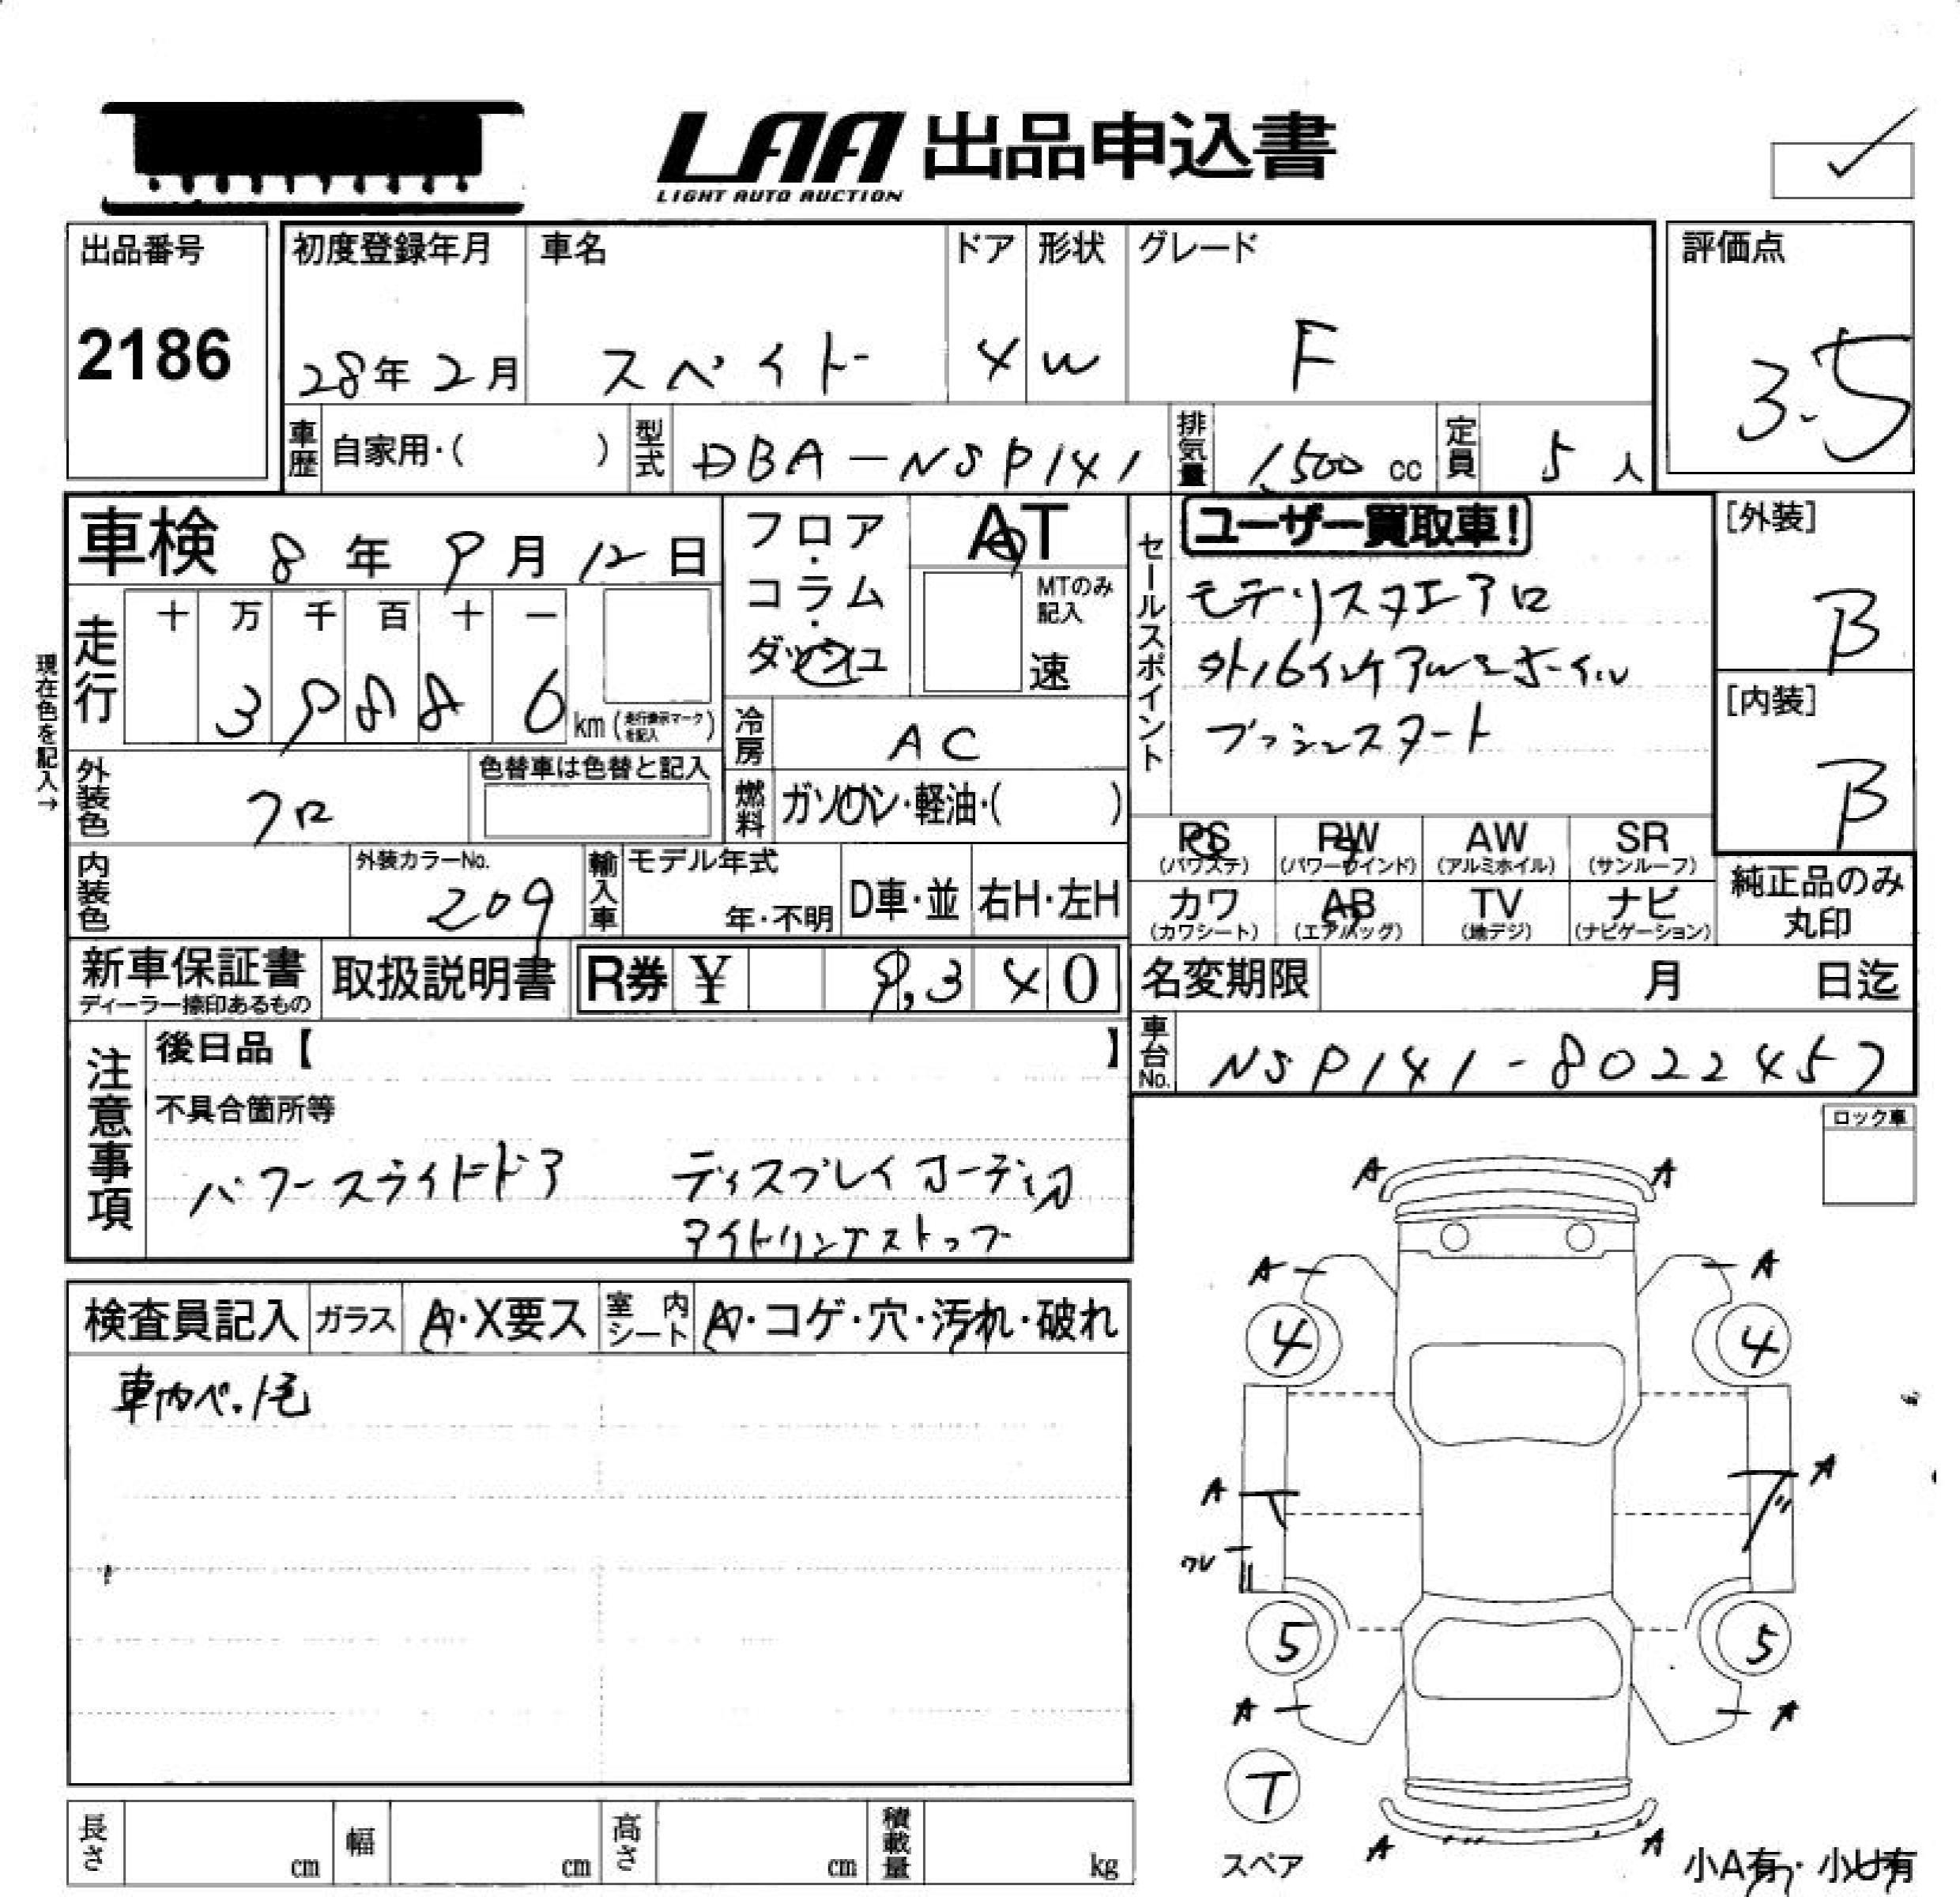 LAA 出品申込書
LIGHT AUTO AUCTION
出品番号
2186
初度登録年月
28年2月
車名
スペイド
ドア
4
形状
W
グレード
F
評価点
3.5
車歴 自家用・( )
型式 DBA-NSP141
排気量 1,500 cc
定員 5人
車検 8年9月12日
フロア・コラム・ダッシュ
AT
MTのみ記入
速
走行 十 万 千 百 十 一
3 9 8 8 6 km (走行表示マークを記入)
現在色を記入→
外装色 クロ
色替車は色替と記入
冷房 AC
燃料 ガソリン・軽油・( )
内装色
外装カラーNo. 209
輸入車 モデル年式
年・不明
D車・並
右H・左H
セールスポイント
ユーザー買取車!
モデリスタエアロ
外16インチアルミホイル
プッシュスタート
[外装]
B
[内装]
B
PS (パワステ)
PW (パワーウインド)
AW (アルミホイル)
SR (サンルーフ)
カワ (カワシート)
AB (エアバッグ)
TV (地デジ)
ナビ (ナビゲーション)
純正品のみ丸印
新車保証書
ディーラー捺印あるもの
取扱説明書
R券 ¥ 9,340
名変期限 月 日迄
車台No. NSP141-8022457
注意事項
後日品【 】
不具合箇所等
パワースライドドア ディスプレイオーディオ
アイドリングストップ
ロック車
検査員記入
ガラス A・X要ス
室内シート A・コゲ・穴・汚れ・破れ
車内ペット毛
A A
A A
4 4
A A
ワレ
5 5
A A
T
スペア
A A
小A有・小U有
長さ cm
幅 cm
高さ cm
積載量 kg